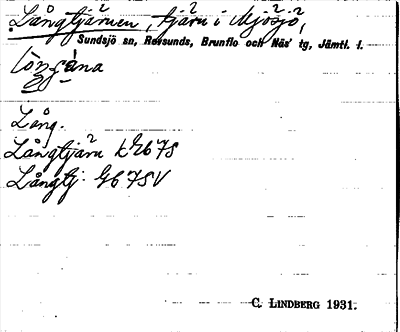 Långtjärnen, tjärn i Mjösjö,
Sundsjö sn, Revsunds, Brunflo och Näs' tg, Jämtl. l.
Lång.
Långtjärn
Långtj.
C. LINDBERG 1931.